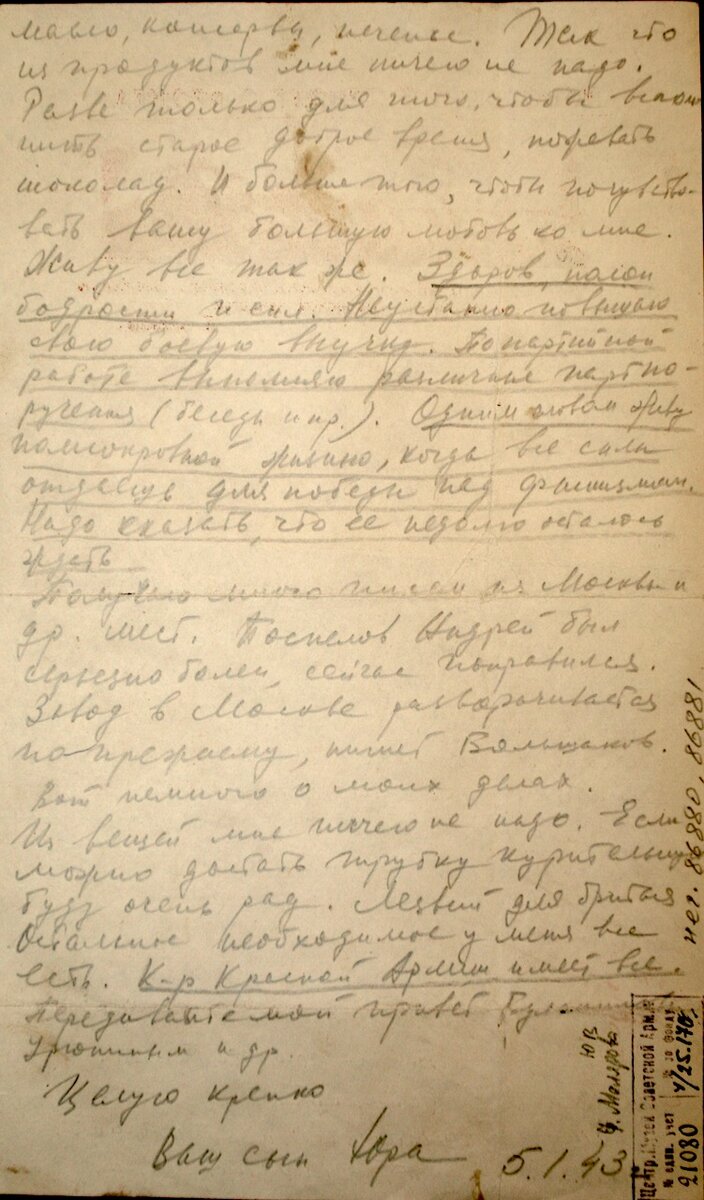 масло, консервы, печенье. Так что
из продуктов мне ничего не надо.
Разве только для того, чтобы вспом
нить старое доброе время, пожевать
шоколад. И больше того, чтобы почувство-
вать вашу большую любовь ко мне.
Живу все так же. Здоров, полон
бодрости и сил. Неустанно повышаю
свою боевую выучку. По партийной
работе выполняю различные партпо-
ручения (беседы и пр.). Одним словом живу
полнокровной жизнью, когда все силы
отдаешь для победы над фашизмом.
Надо сказать, что ее недолго осталось
ждать
Получаю много писем из Москвы и
др. мест. Поспелов Андрей был
серьезно болен, сейчас поправился.
Завод в Москве разворачивается
по прежнему, пишет
Вот немного о моих делах.
Из вещей мне ничего не надо. Если
можно достать трубку курительную
буду очень рад. Лезвий для бритья
Остальное необходимое у меня все
есть. К-р Красной Армии имеет все.
Передавайте мой привет
и др.
Целую крепко
Ваш сын Юра 5.1.43
нег. 86880, 86881
Центр. Музей Советской Армии
№ един. учет
21080
№ по фонду
4/25.170